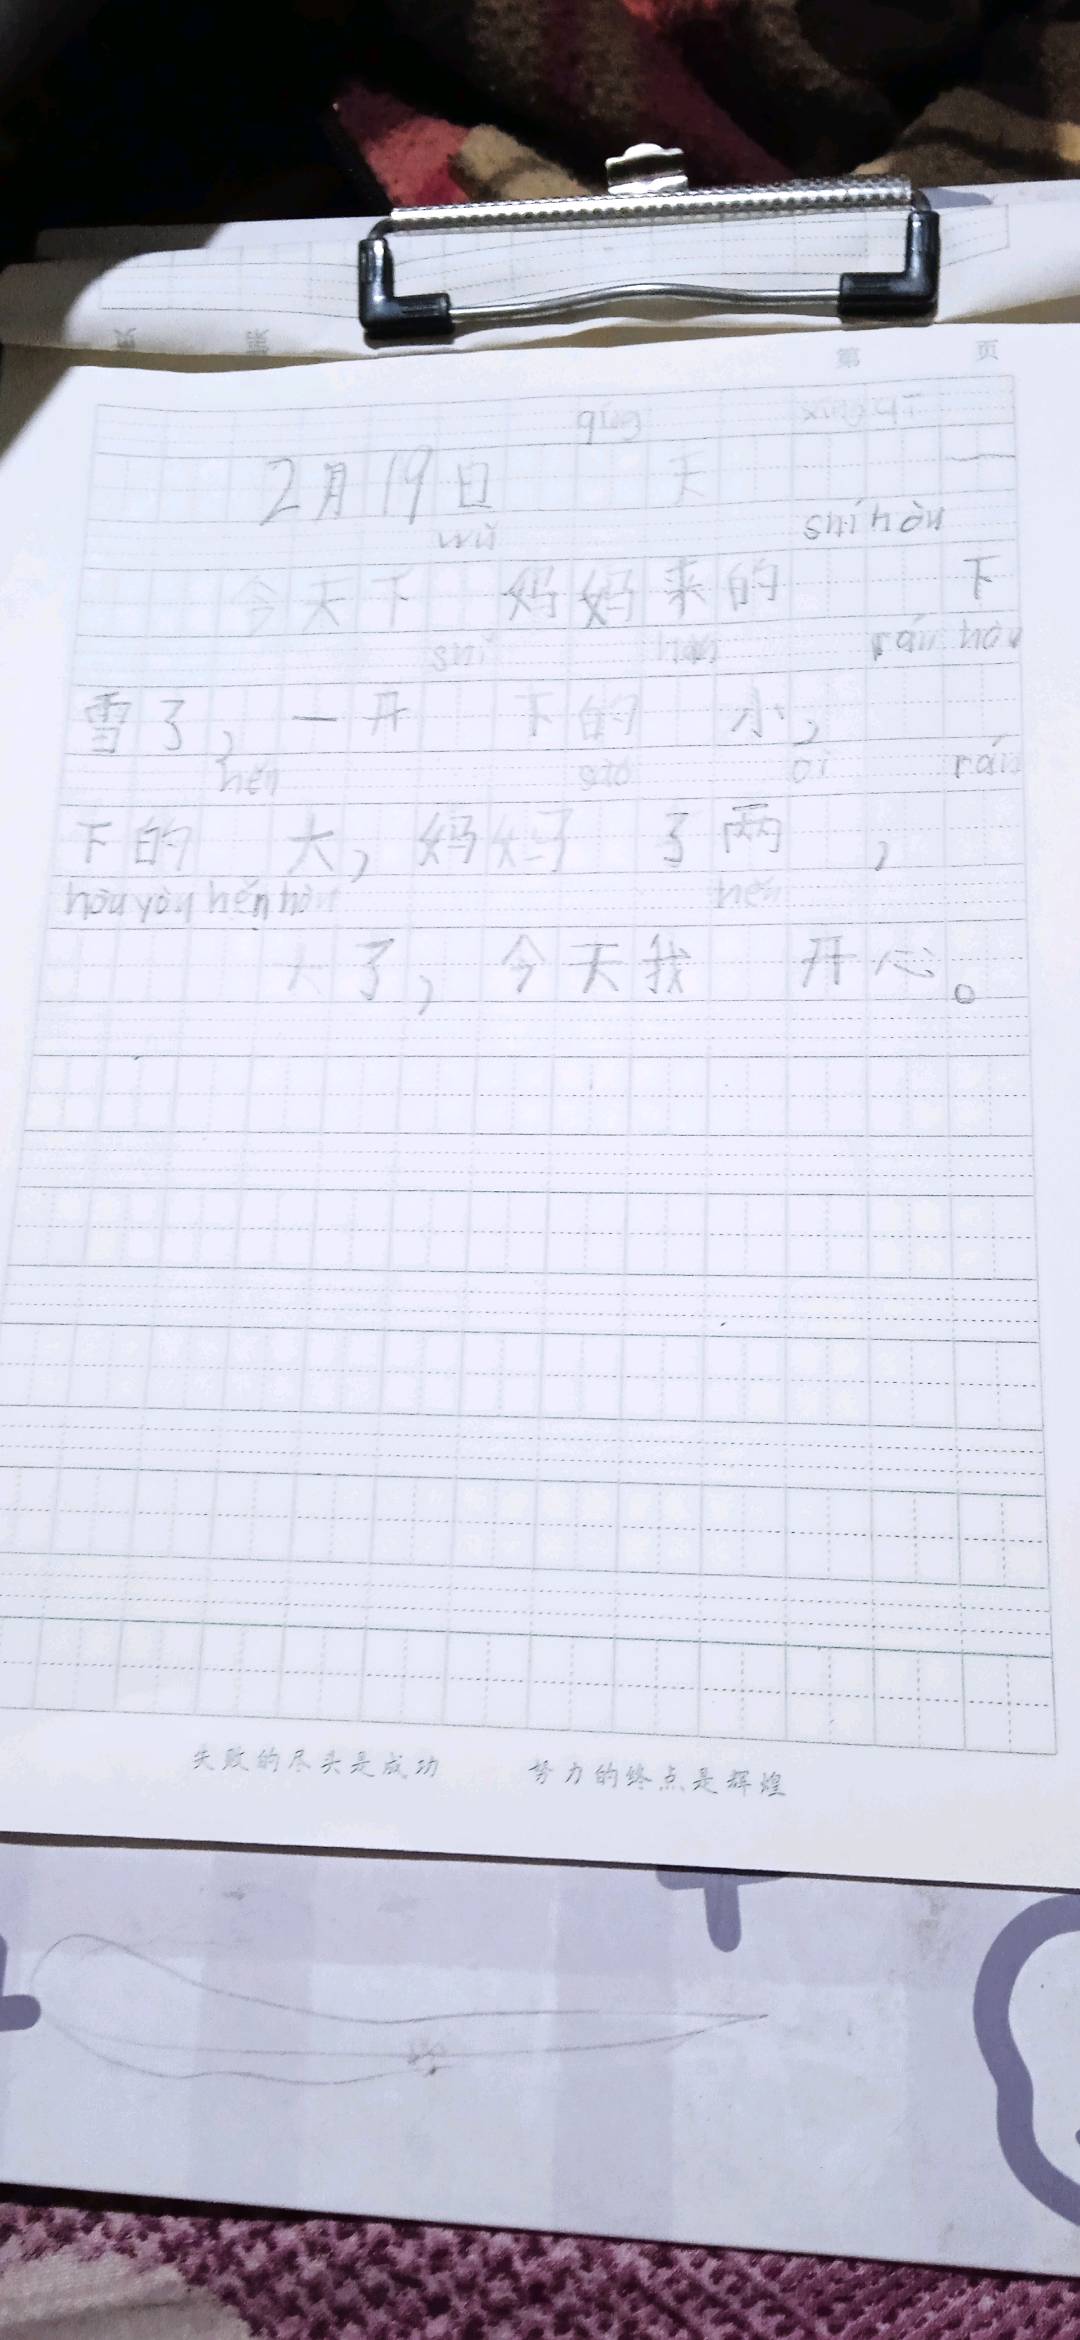 第 页
qíng xīng qī
2月19日 天 一
wǔ shí hòu
今天下 妈妈来的 下
shǐ hěn rán hòu
雪了，一开 下的 小，
hěn rán
下的 大，妈妈 了两 ，
hòu yòu hěn hòu hěn
大了，今天我 开心。
失败的尽头是成功 努力的终点是辉煌